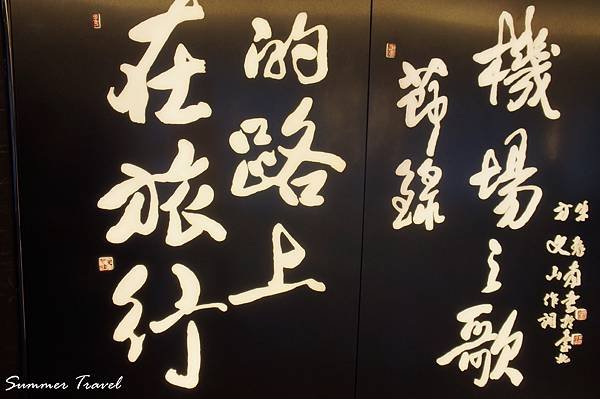 機場之歌
節錄
方文山作詞
朱振南書於臺北
的路上
在旅行
Summer Travel